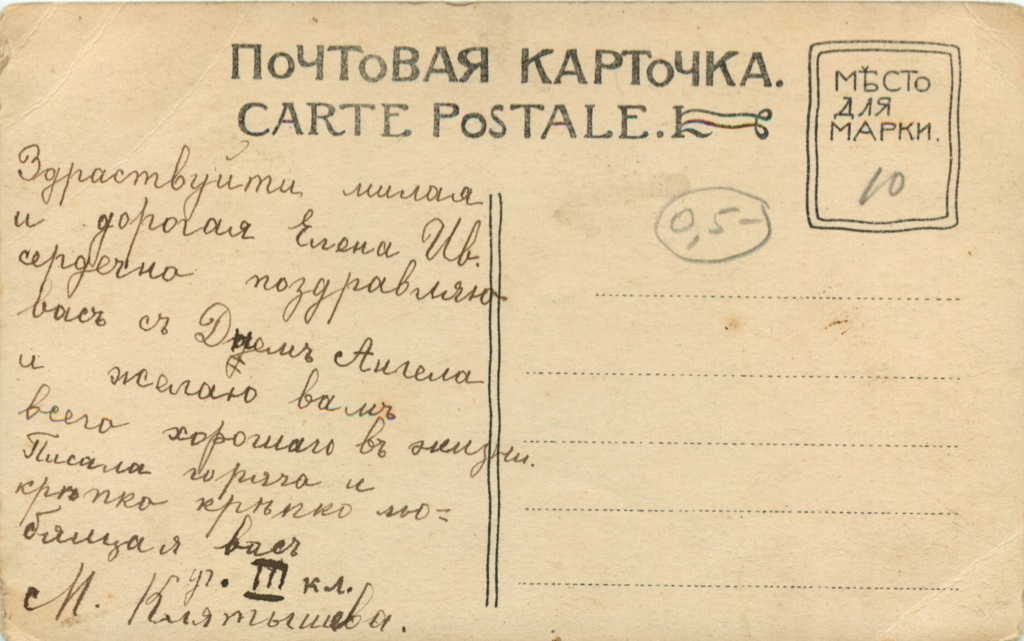 ПОЧТОВАЯ КАРТОЧКА.
CARTE POSTALE.
МѢСТО
ДЛЯ
МАРКИ.
10
0,5-
Здраствуйти милая
и дорогая Елена Ив.
сердечно поздравляю
васъ съ Днемъ Ангела
и желаю вамъ
всего хорошаго въ жизни.
Писала горячо и
крѣпко крѣпко лю=
бящая васъ
уч. III кл.
М. Клятышева.